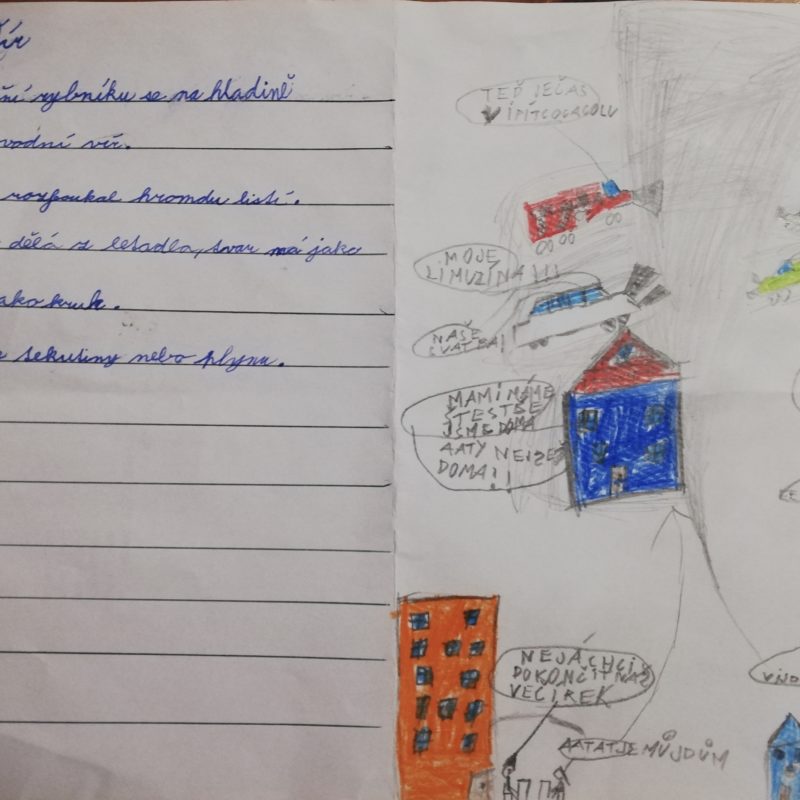 ční rybníku se na hladině
vodní vír.
rozfoukal hromdu listí.
dělá z letadla, tvar má jako
ako kruh.
tekutiny nebo plynu.
TEĎ JEČAS
MOJE
LIMUZÍNA!!!
NAŠE
SVATBA!
MAMI MÁME
ŠTESTŠE
JSME DOMA
AATY NEJSEŠ
DOMA!!
NEJÁCHCI
DOKONČIT NÁŠ
VEČÍREK
AATATJEMŮJDŮM